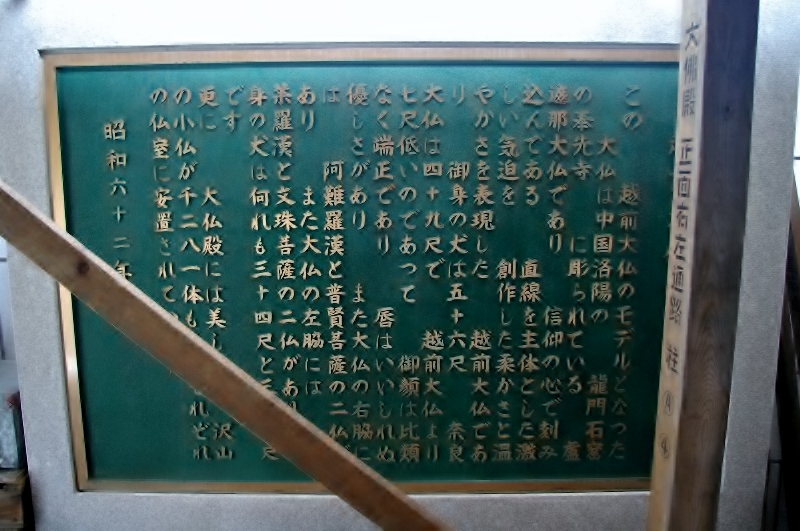 この 越前大仏のモデルとなった
大仏は中国洛陽の 龍門石窟
の奉先寺 に彫られている 盧
遮那大仏であり 信仰の心で刻み
込んである 直線を主体とした激
しい気迫を 創作した柔かさと温
やかさを表現した 越前大仏であ
り 御身の丈は五十六尺 奈良
大仏は四十九尺で 越前大仏より
七尺低いのであって 御顔は比類
なく端正であり 唇はいいしれぬ
優しさがあり また大仏の右脇に
は 阿難羅漢と普賢菩薩の二仏が
あり また大仏の左脇には
茶羅漢と文珠菩薩の二仏があり
身の丈は何れも三十四尺と
です
更に 大仏殿には美し 沢山
の小仏が千二八一体も それぞれ
の仏室に安置されて
昭和六十二年
大佛殿 正面右左通路 柱